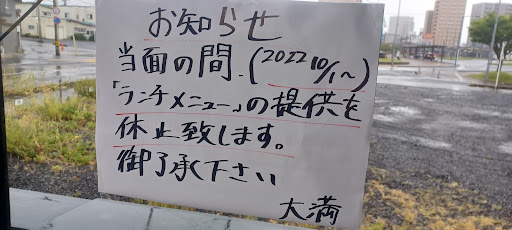 お知らせ
当面の間、(2022 10/1〜)
「ランチメニュー」の提供を
休止致します。
御了承下さい
大満